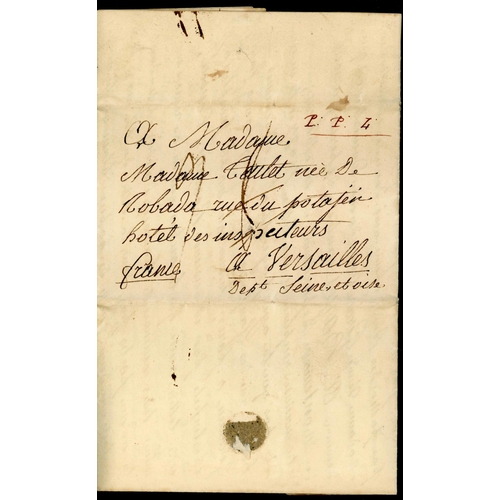 P. P. 4
A Madame
Madame Toulet née De
Robada rue du potager
hotél des inspecteurs
france A Versailles
Dept Seine et oise